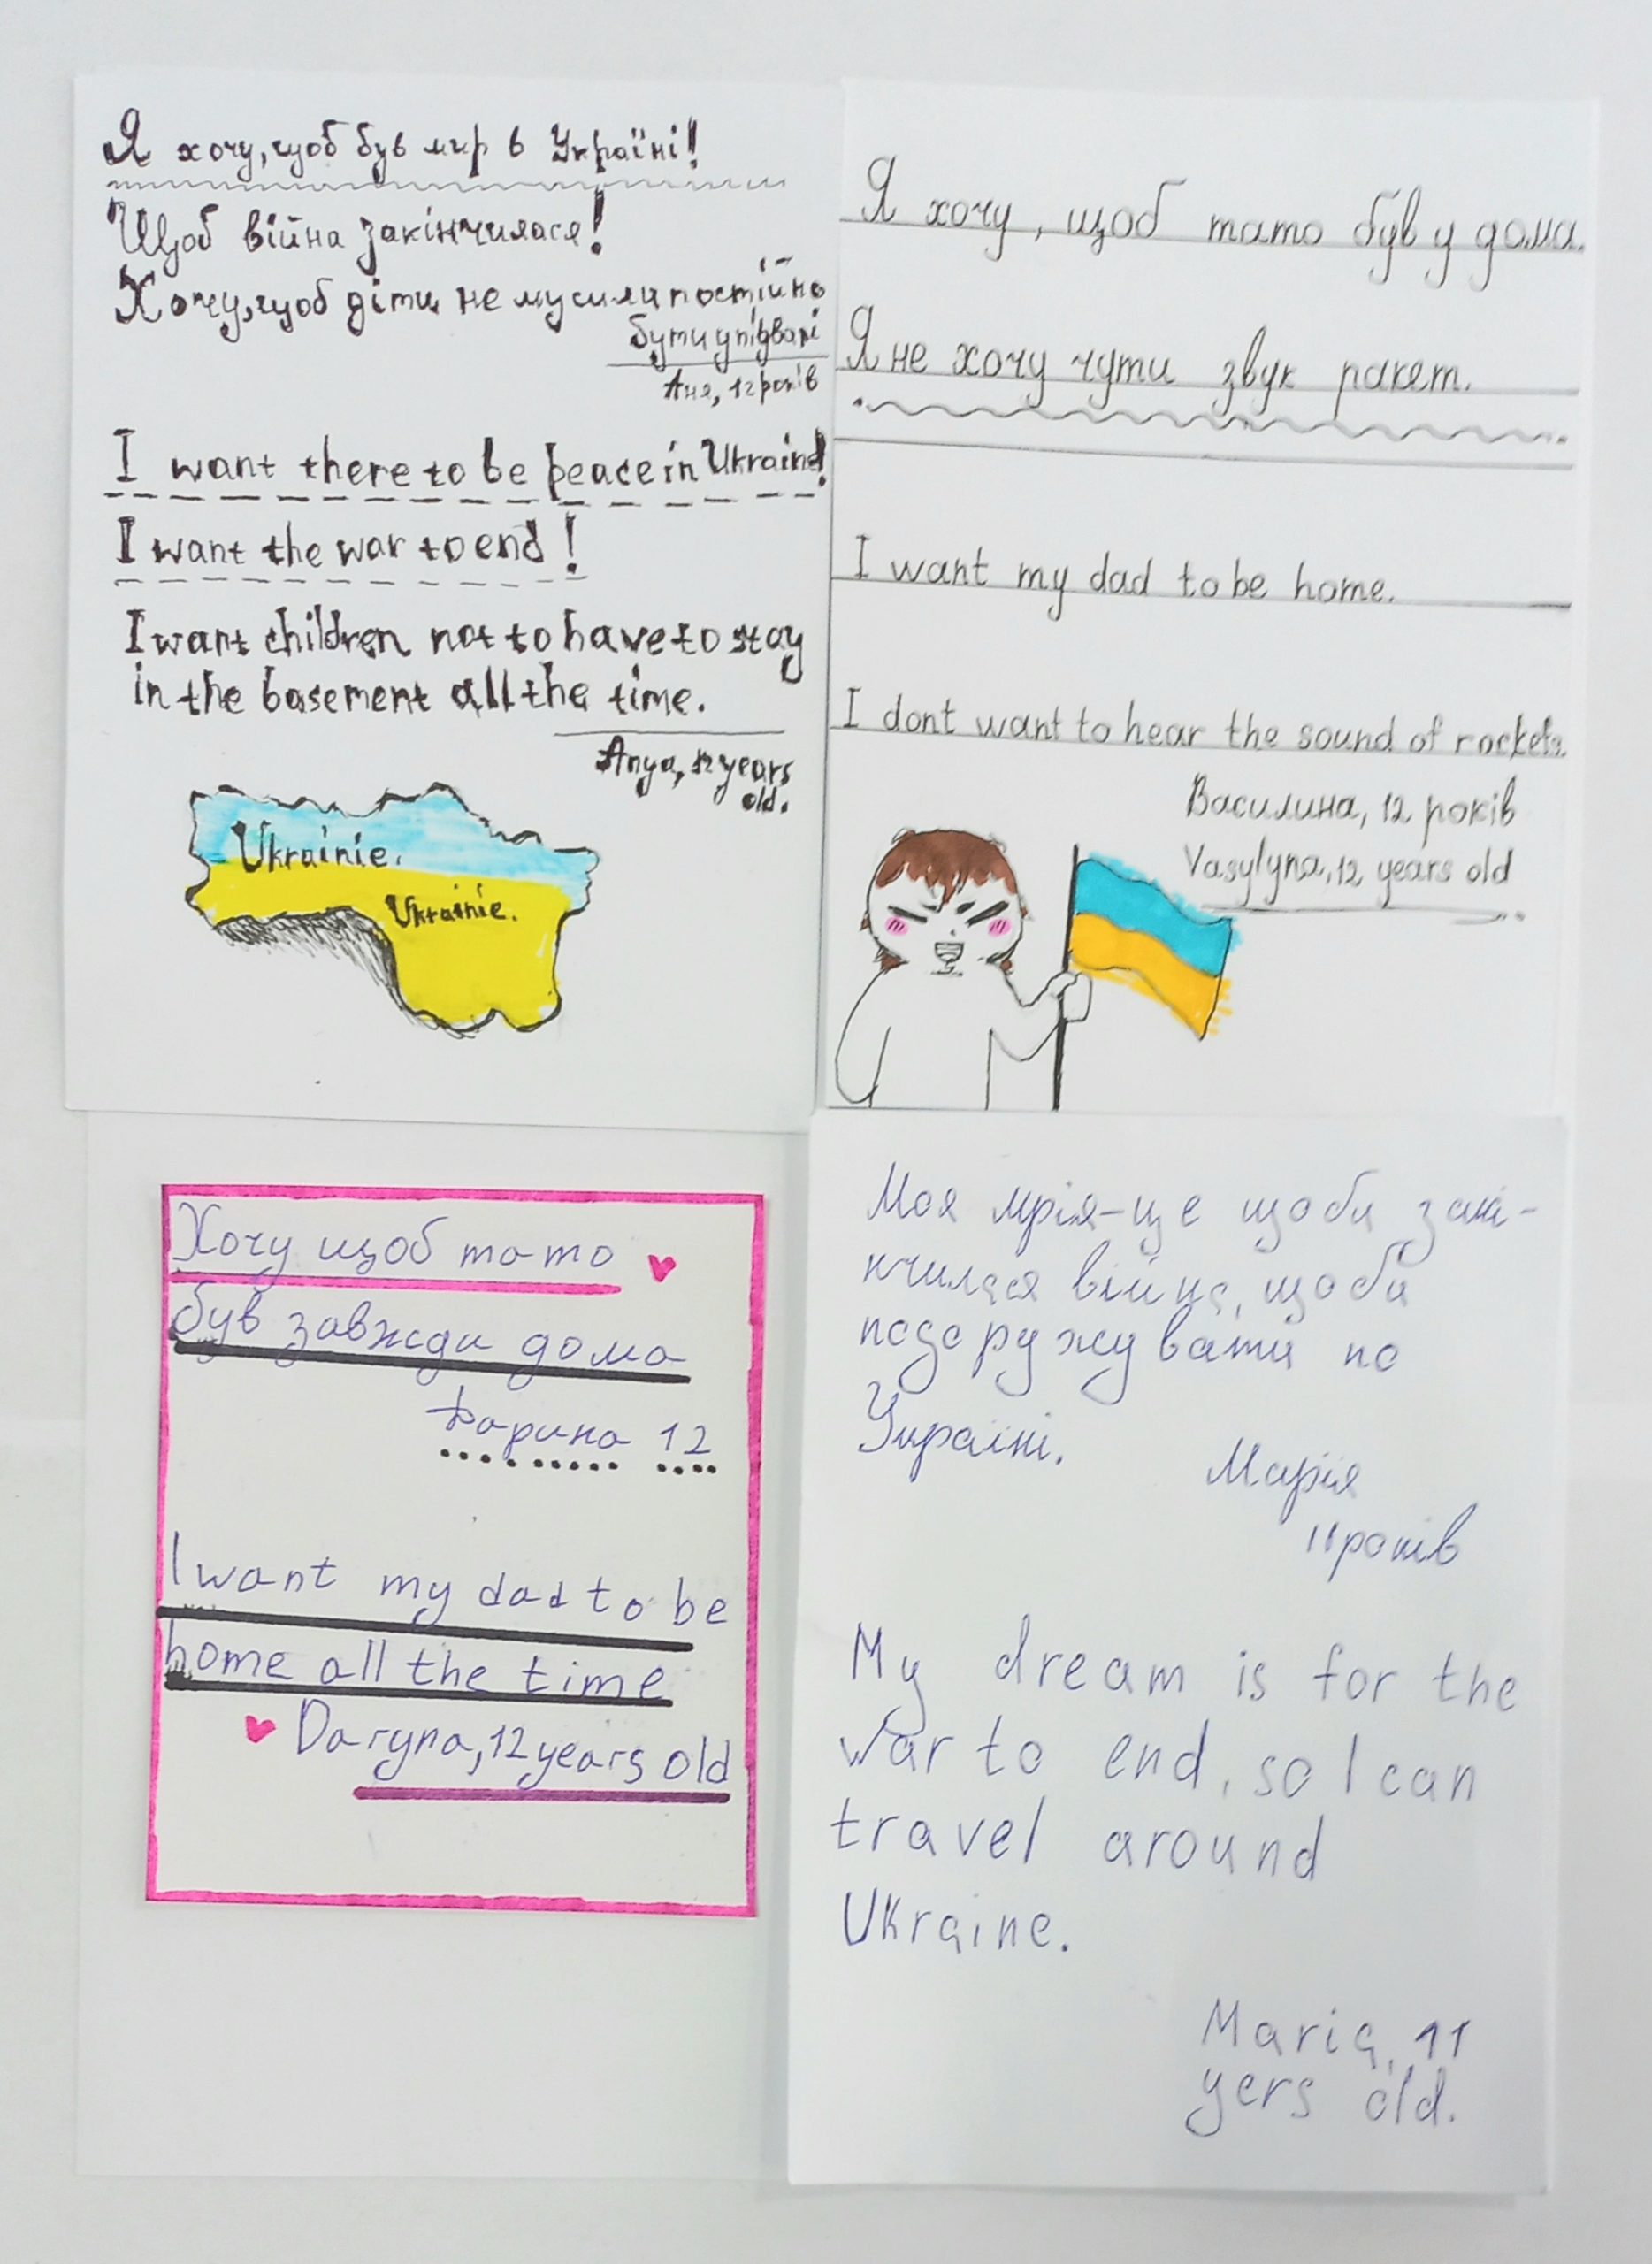 Я хочу, щоб був мир в Україні!
Щоб війна закінчилася!
Хочу, щоб діти не мусили постійно
бути у підвалі
Аня, 12 років
I want there to be peace in Ukraine!
I want the war to end!
I want children not to have to stay
in the basement all the time.
Anya, 12 years
old.
Ukrainie.
Ukrainie.
Я хочу, щоб тато був у дома.
Я не хочу чути звук ракет.
I want my dad to be home.
I dont want to hear the sound of rockets.
Василина, 12 років
Vasylyna, 12 years old
Хочу щоб тато
був завжди дома
Дарина 12
I want my dad to be
home all the time
Daryna, 12 years old
Моя мрія-це щоби закі-
нчилася війна, щоби
подоружувати по
Україні.
Марія
11 років
My dream is for the
war to end, so I can
travel around
Ukraine.
Maria, 11
yers old.